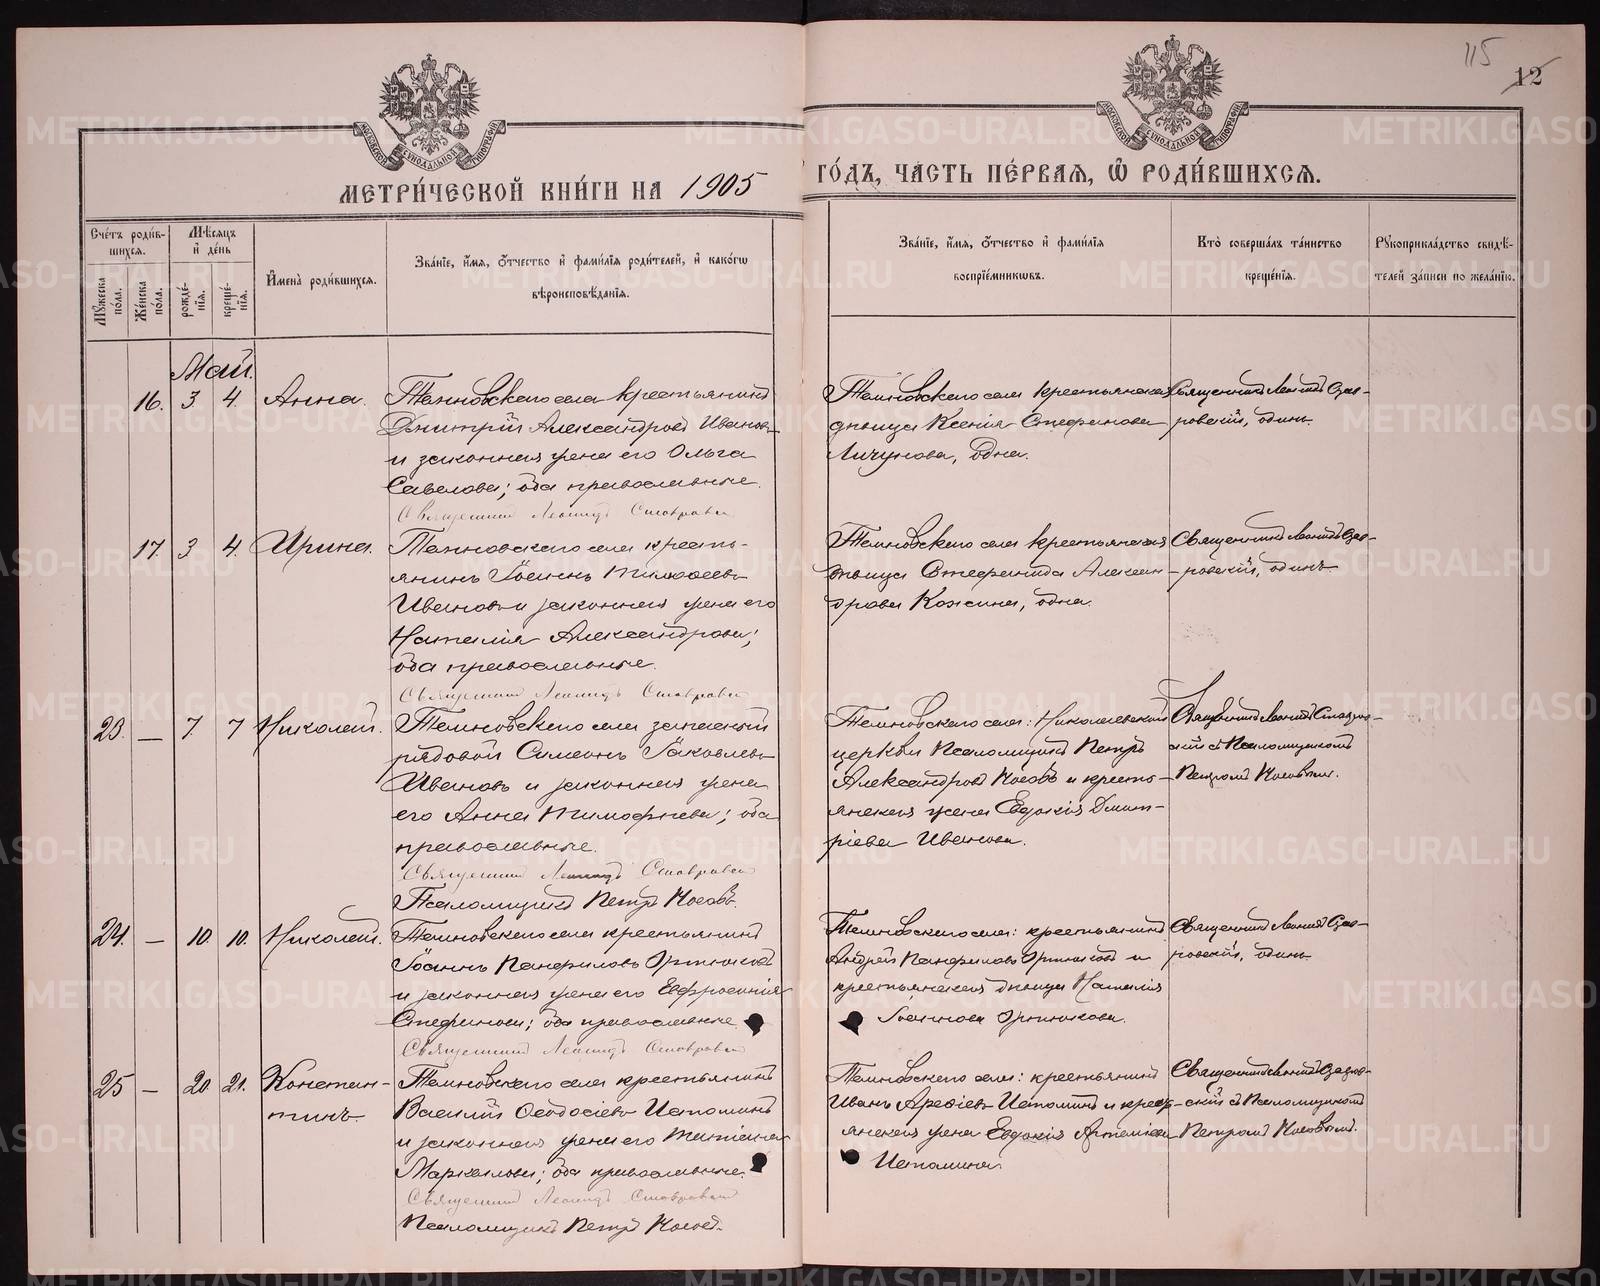 115
12
МОСКОВСКОЙ СѴНОДАЛЬНОЙ ТИПОГРАФІИ
МОСКОВСКОЙ СѴНОДАЛЬНОЙ ТИПОГРАФІИ
МЕТРИ́ЧЕСКОЙ КНИ́ГИ НА 1905 ГО́ДЪ, ЧА́СТЬ ПЕ́РВАЯ, Ѽ РОДИ́ВШИХСЯ.
Сче́тъ роди́в-
шихся.
Му́жеска по́ла.
Же́нска по́ла.
Мѣ́сяцъ
и҆ де́нь
рожде́нія.
креще́нія.
И҆мена̀ роди́вшихся.
Зва́ніе, и҆́мя, ѻ҆́тчество и҆ фами́лія роди́телей, и҆ како́гѡ
вѣроисповѣ́данія.
Зва́ніе, и҆́мя, ѻ҆́тчество и҆ фами́лія
воспріе́мниковъ.
Кто̀ соверша́лъ та́инство
креще́нія.
Рꙋкоприкла́дство свидѣ́-
телей за́писи по жела́нію.
Май.
16. 3. 4. Анна.
Темновскаго села крестьянинъ
Дмитрій Александровъ Ивановъ
и законная жена его Ольга
Савелова; оба православные.
Священникъ Леонидъ Ставровскій
Темновскаго села крестьянская
дѣвица Ксенія Стефанова
Личунова, одна.
Священникъ Леонидъ Став-
ровскій, одинъ.
17. 3 4. Ирина.
Темновскаго села кресть-
янинъ Іоаннъ Тимофеевъ
Ивановъ и законная жена его
Наталія Александрова;
оба православные.
Священникъ Леонидъ Ставровскій
Темновскаго села крестьянская
дѣвица Стефанида Алексан-
дрова Кожина, одна.
Священникъ Леонидъ Став-
ровскій, одинъ.
23. — 7. 7 Николай.
Темновскаго села запасный
рядовой Симеонъ Іаковлевъ
Ивановъ и законная жена
его Анна Тимофѣева; оба
православные.
Священникъ Леонидъ Ставровскій
Псаломщикъ Петръ Носовъ.
Темновскаго села: Николаевской
церкви Псаломщикъ Петръ
Александровъ Носовъ и кресть-
янская жена Евдокія Дмит-
ріева Иванова.
Священникъ Леонидъ Ставров-
скій съ Псаломщикомъ
Петромъ Носовымъ.
24. — 10. 10. Николай.
Темновскаго села крестьянинъ
Іоаннъ Панфиловъ Ортюковъ
и законная жена его Евфросинія
Стефанова; оба православные.
Священникъ Леонидъ Ставровскій
Темновскаго села: крестьянинъ
Андрей Панфиловъ Ортюковъ и
крестьянская дѣвица Наталія
Іоаннова Ортюкова.
Священникъ Леонидъ Став-
ровскій, одинъ.
25 — 20. 21. Констан-
тинъ.
Темновскаго села крестьянинъ
Василій Ѳеодосіевъ Истоминъ
и законная жена его Татіана
Маркелова; оба православные.
Священникъ Леонидъ Ставровскій
Псаломщикъ Петръ Носовъ.
Темновскаго села: крестьянинъ
Иванъ Арефіевъ Истоминъ и крест-
янская жена Евдокія Артеміева
Истомина.
Священникъ Леонидъ Ставров-
скій съ Псаломщикомъ
Петромъ Носовымъ.
METRIKI.GASO-URAL.RU